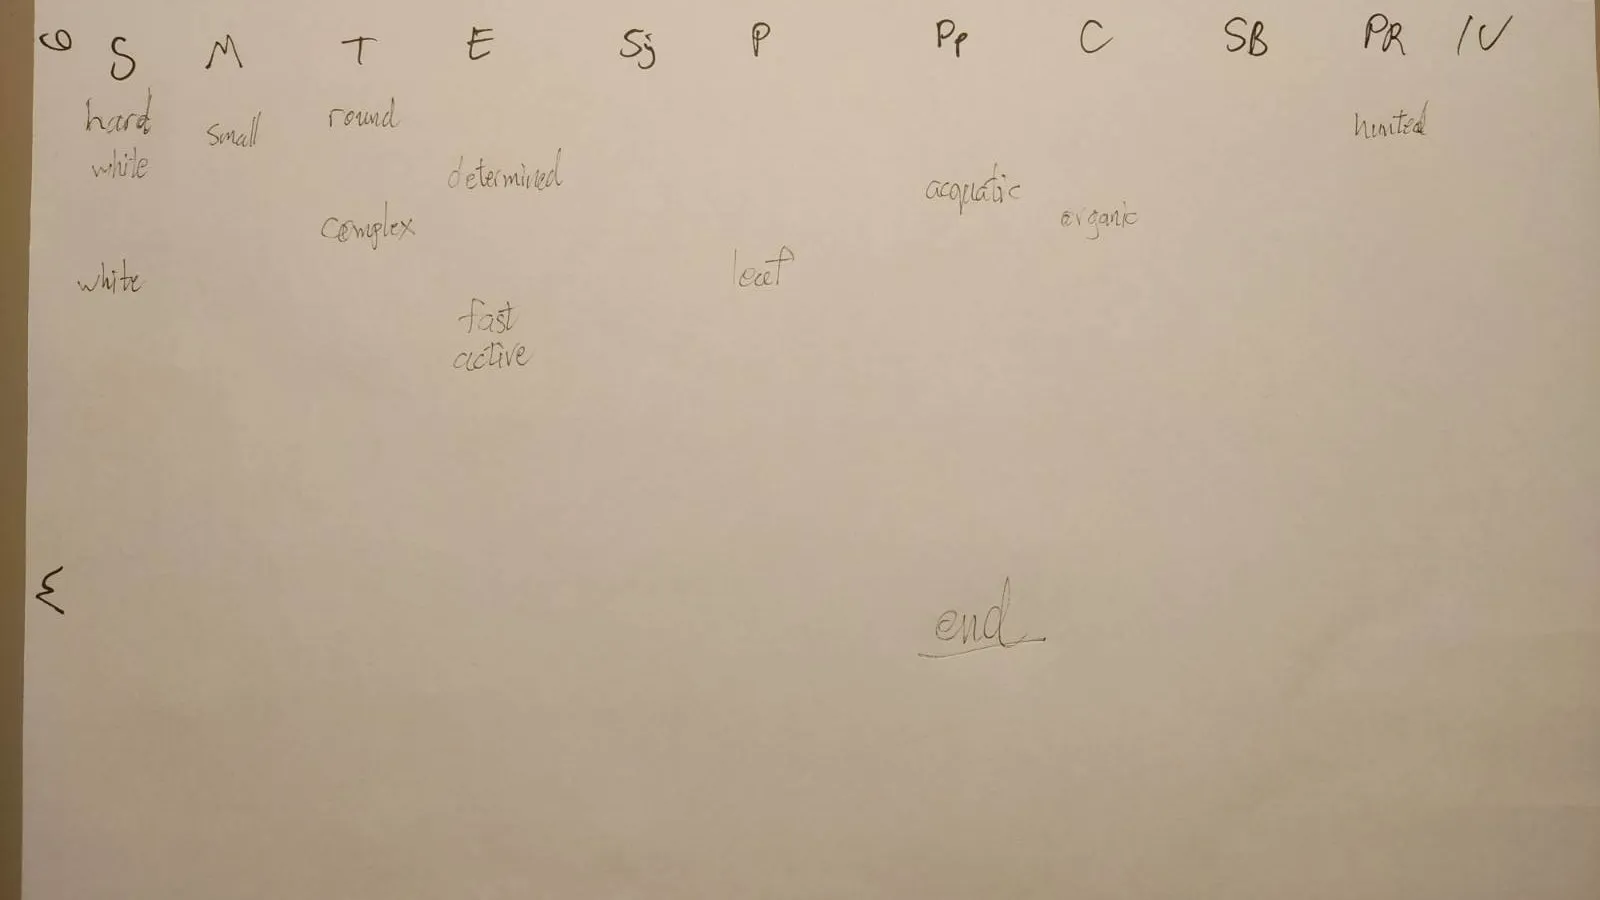 6 S M T E Sj P Pp C SB PR IV
hard small round hunted
white determined acquatic organic
complex
white leaf
fast
active
end